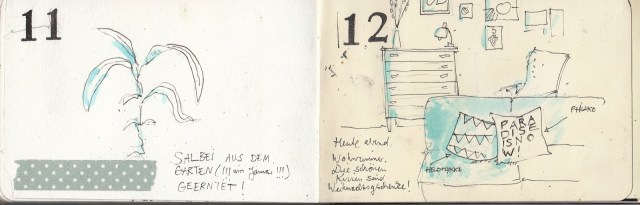 11
SALBEI AUS DEM
GARTEN (!!! im Januar !!!)
GEERNTET!
12
Heute abend
Wohnzimmer.
Die schönen
Kissen sind
Weihnachtsgeschenke!
PARA
DISE
IS NO
W!